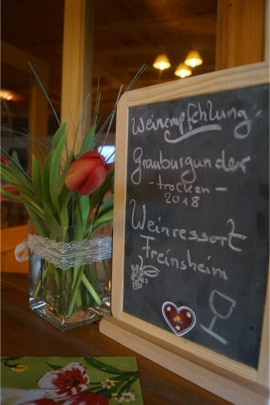 Weinempfehlung
Grauburgunder
- trocken -
2018
Weinressort
Freinsheim